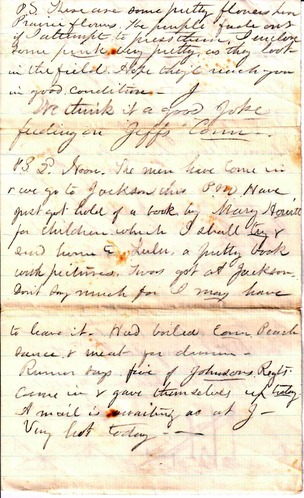 P.S. There are some pretty flowers here
Prairie flowers. The purple fade out
if I attempt to press them. I inclose
some pink very pretty as they look
in the field. Hope they'll reach you
in good condition - J
We think it a good Joke
feeding on Jeff's Corn -
P.S. 2. Noon. The men have come in
& we go to Jackson this P.M. Have
just got hold of a book by Mary Howitt
for children which I shall try &
send home to Lulu, a pretty book
with pictures. Twas got at Jackson
Don't say much for I may have
to leave it. Had boiled Corn Peach
sauce & meat for dinner -
Rumor says five of Johnsons Regts
came in & gave themselves up today
A mail is waiting us at J -
Very hot today - -